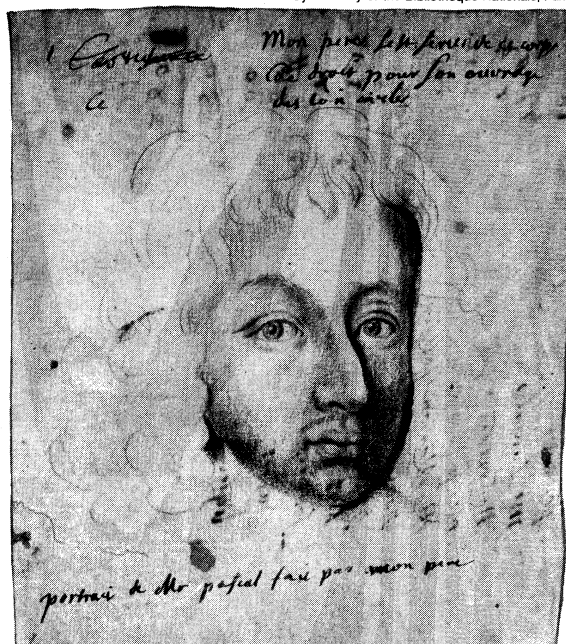 Mon pere s'est servi de ce corps
de droit pour son ouvrage
des loix civiles
Ce
portrait de Mr pascal fait par mon pere